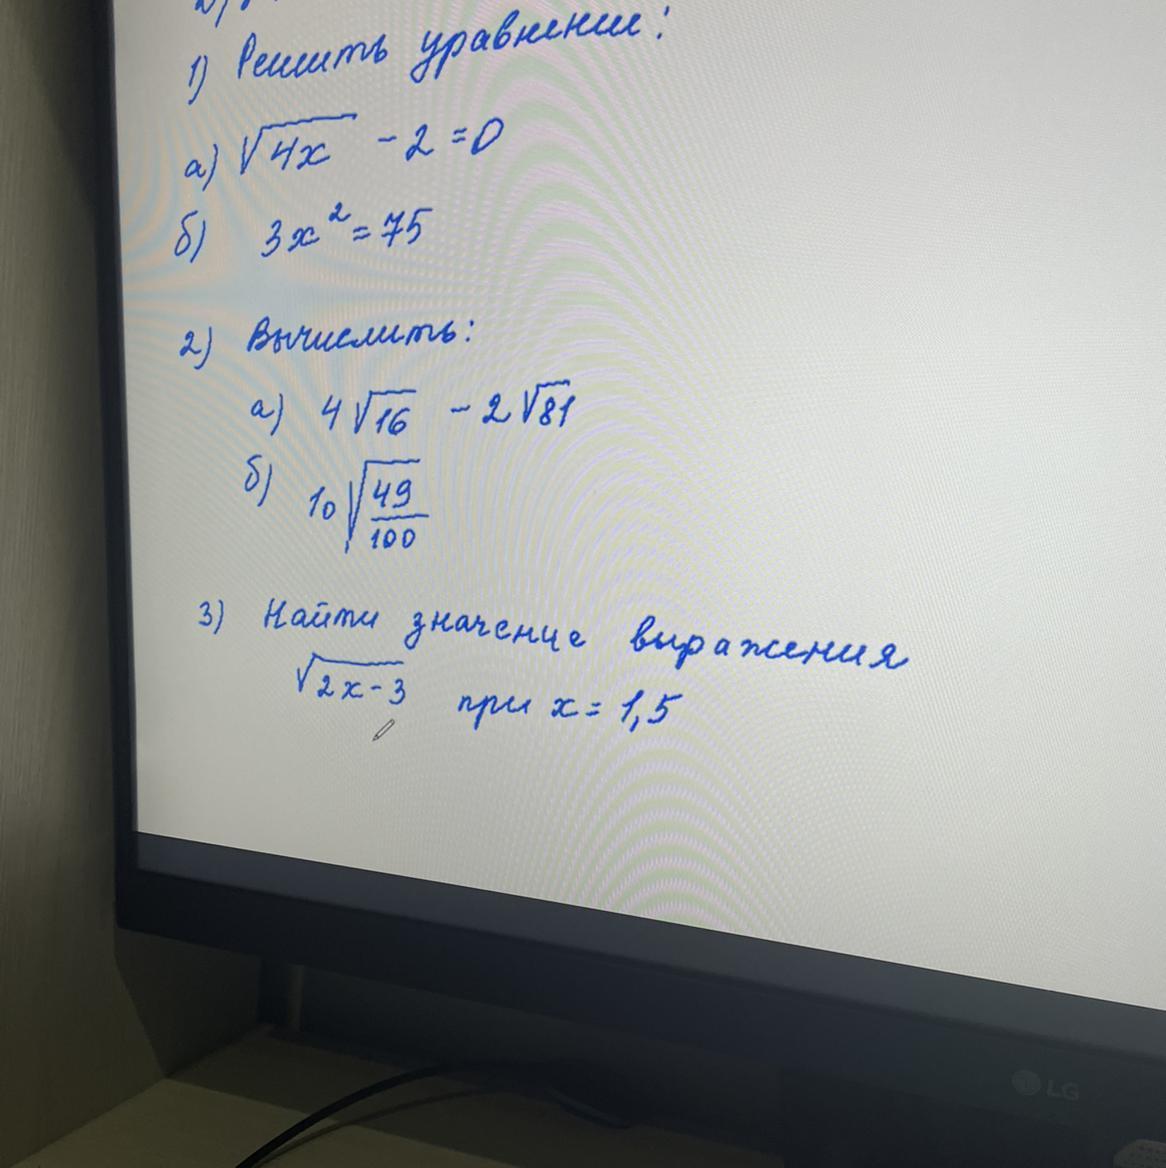 1) Решить уравнение:
а) √4x - 2 = 0
б) 3x² = 75
2) Вычислить:
а) 4√16 - 2√81
б) 10√49/100
3) Найти значение выражения
√2x-3 при x = 1,5
LG